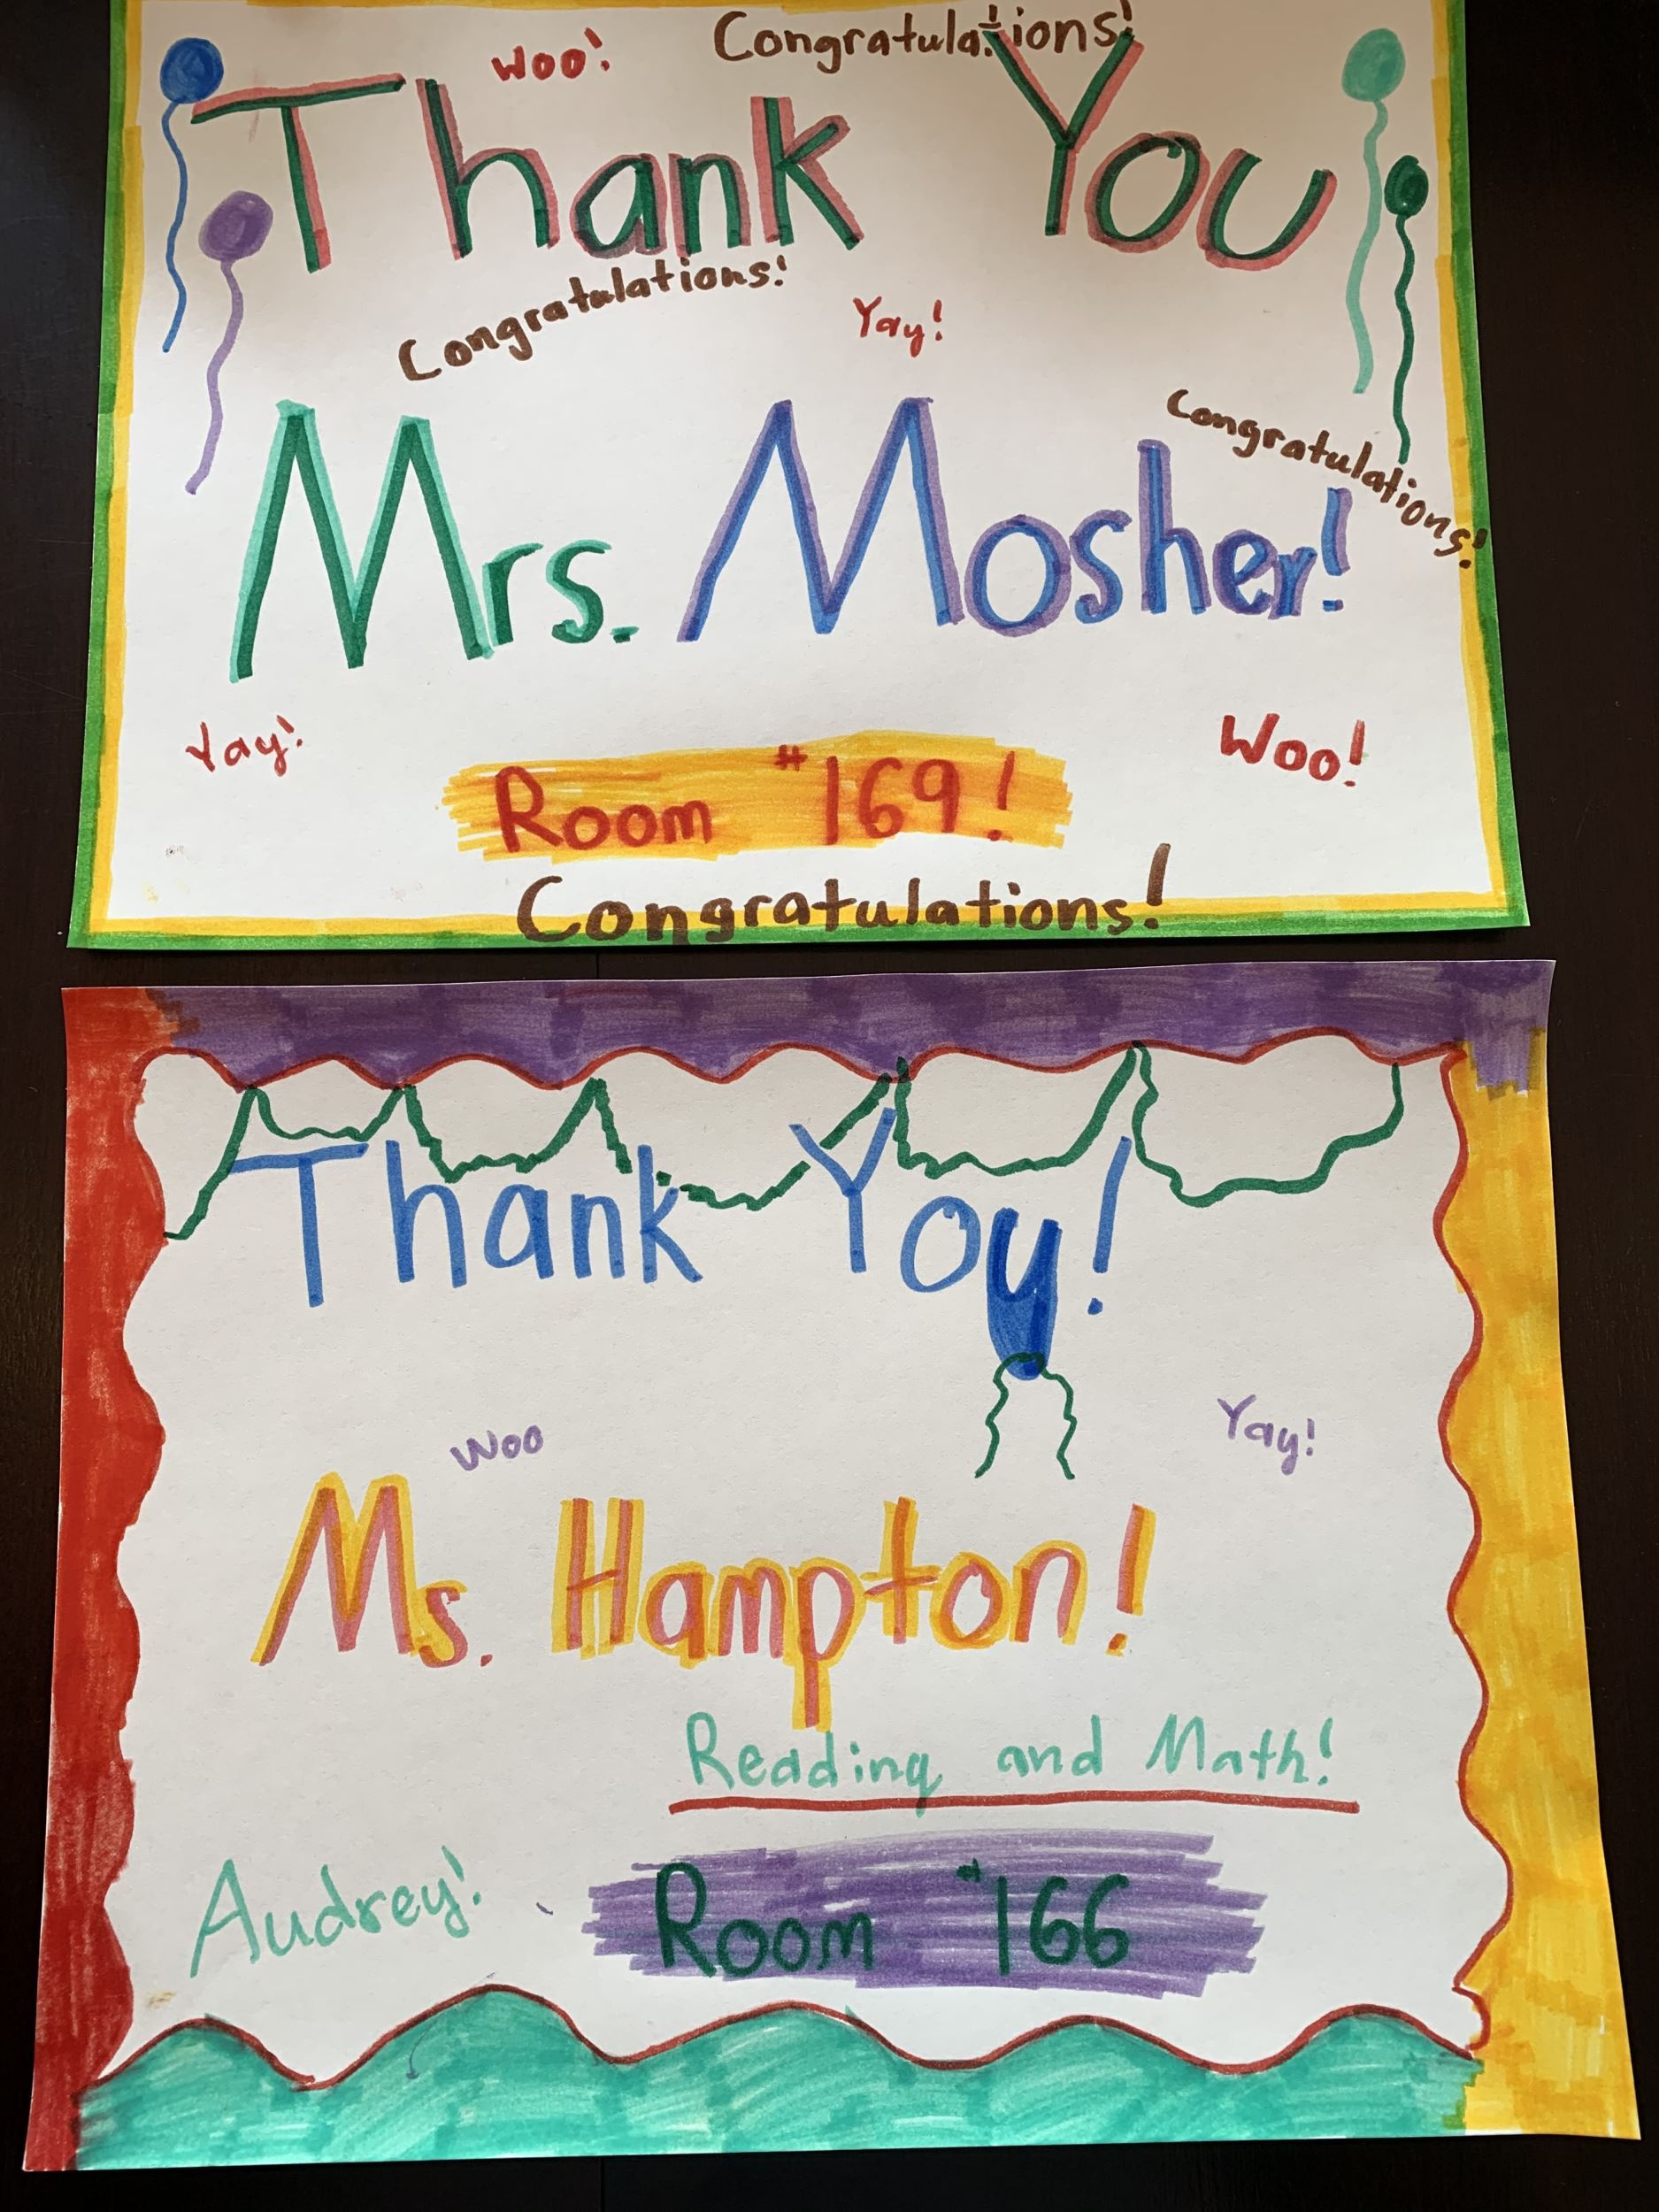 Congratulations!
Woo!
Thank You
Congratulations!
Yay!
Congratulations!
Mrs. Mosher!
Yay!
Woo!
Room #169!
Congratulations!
Thank You!
Woo
Yay!
Ms. Hampton!
Reading and Math!
Audrey!
Room #166